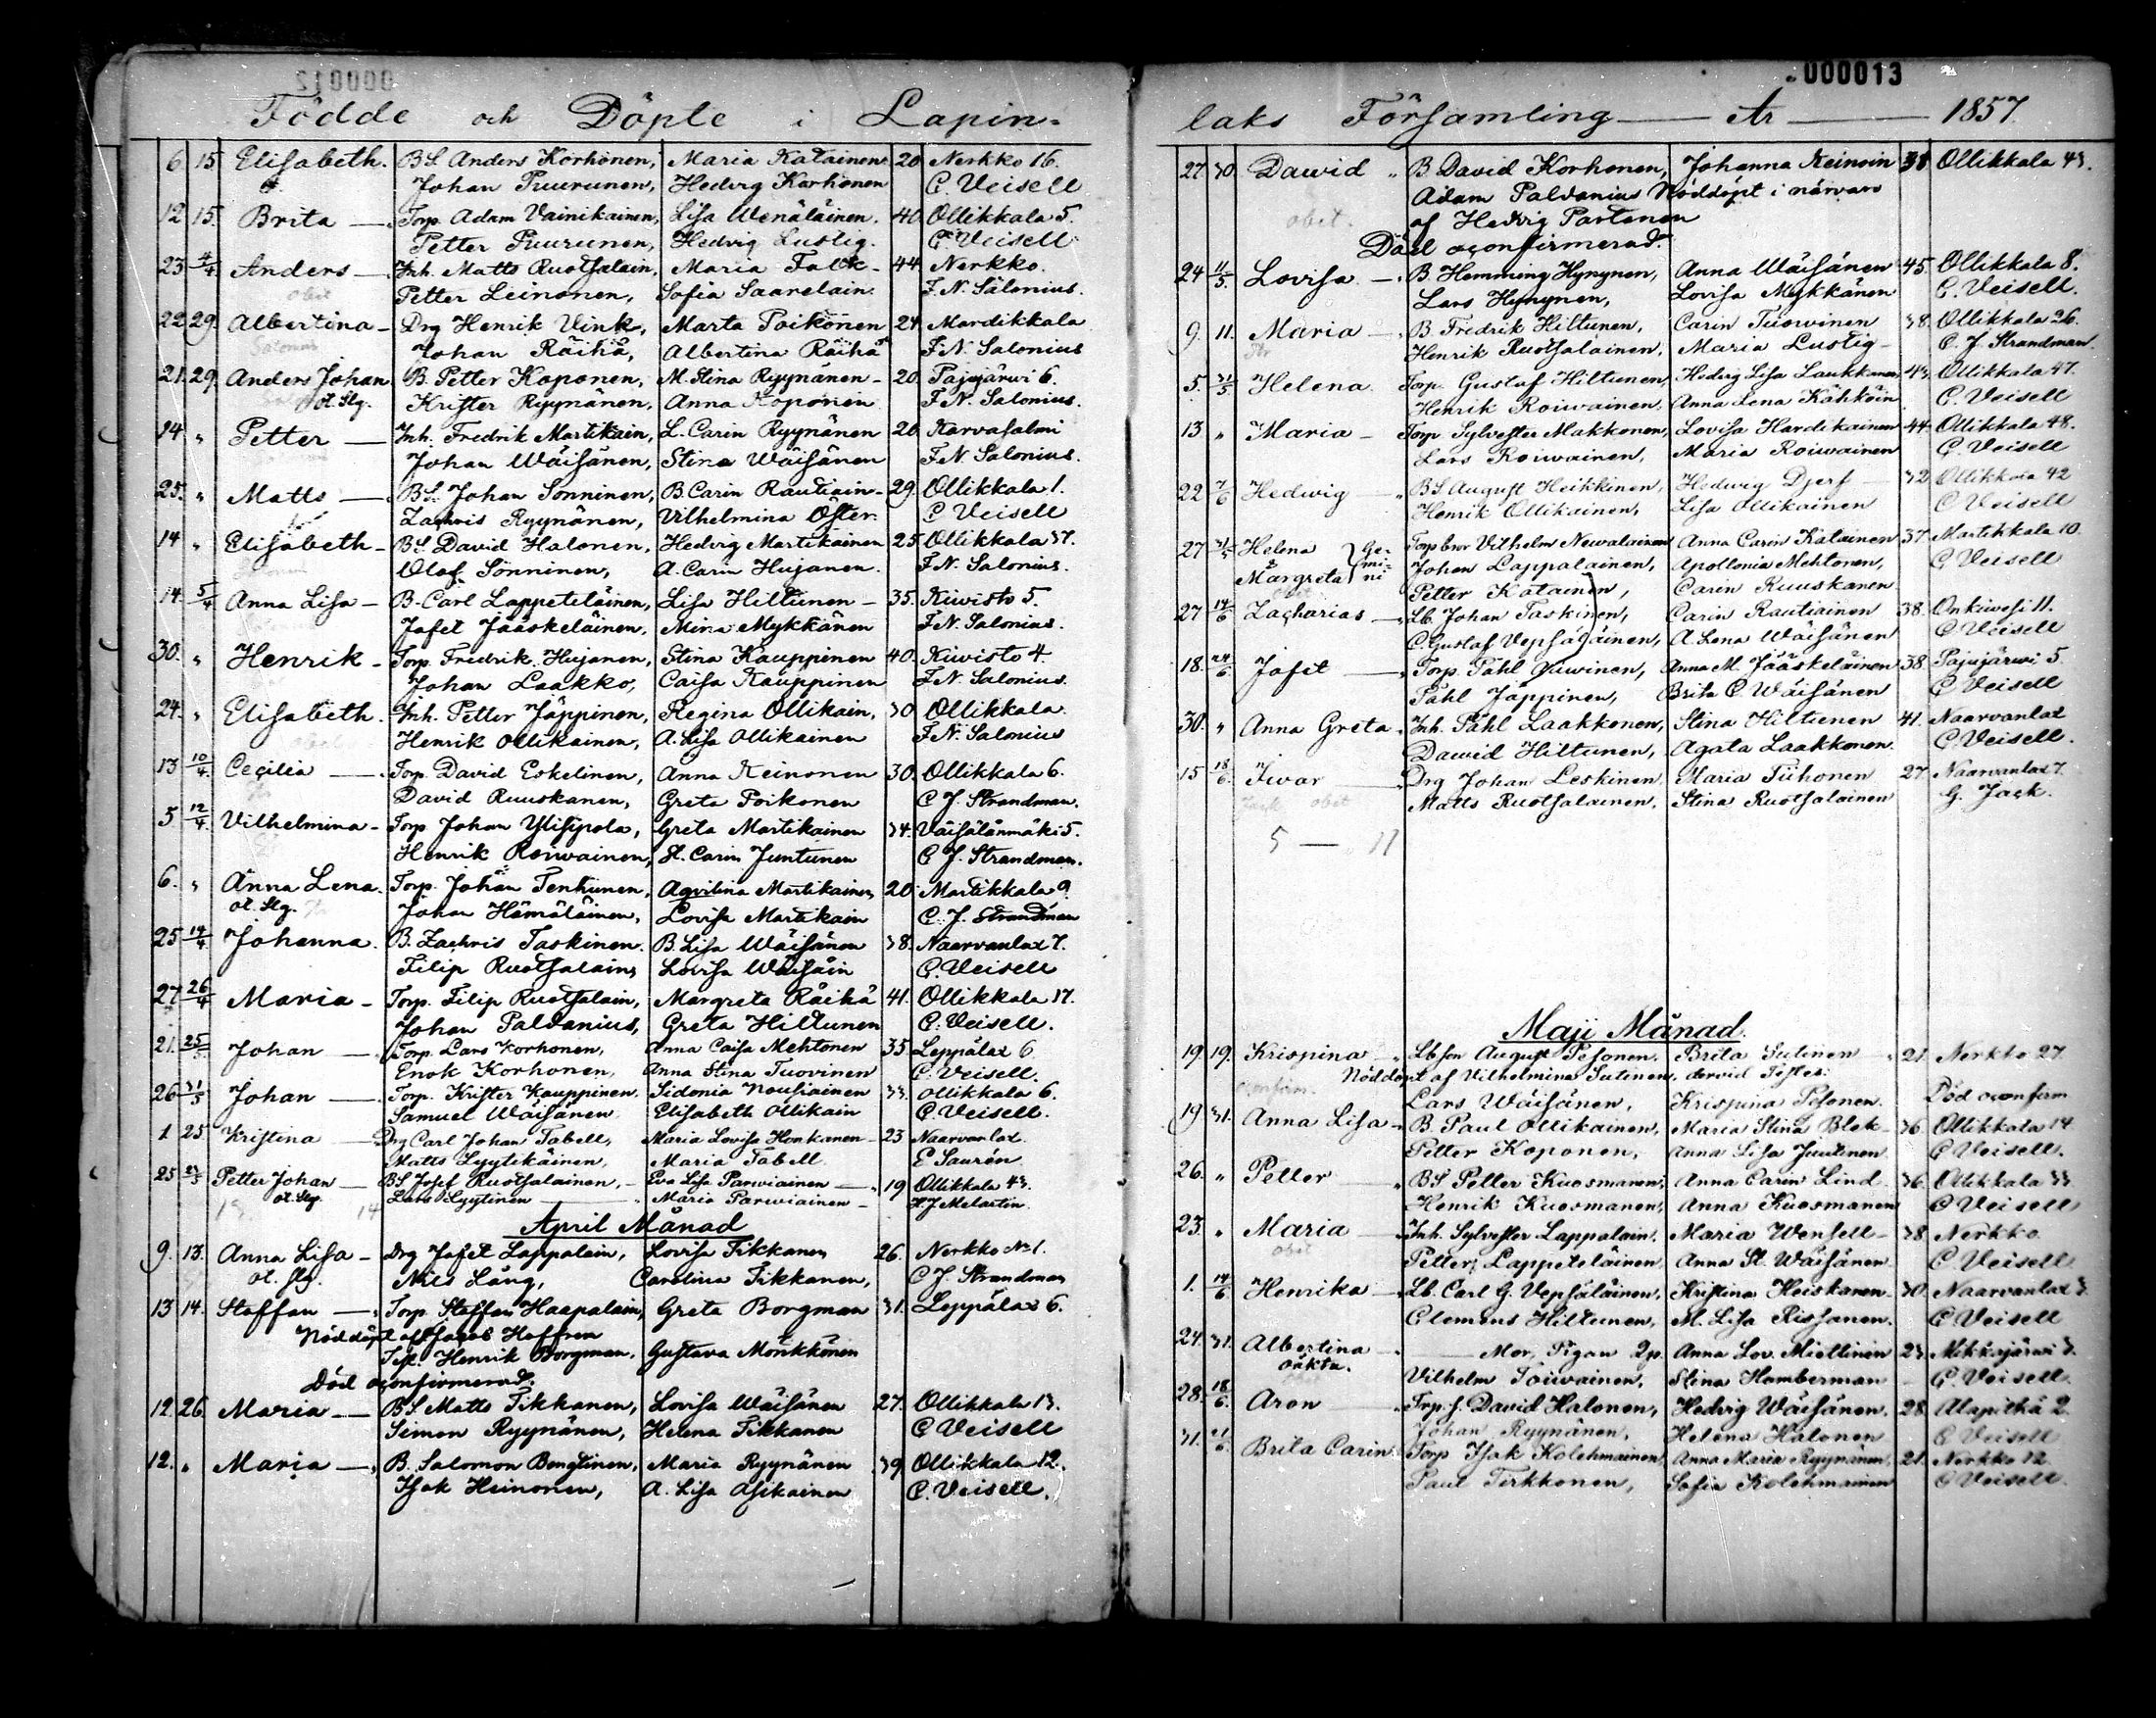 000012
000013
Födde och Döpte i Lapin=
6 15 Elisabeth. BS Anders Korhonen, Maria Katainen 20 Nerkko 16.
Johan Puurunen, Hedvig Korhonen C. Veisell
12 15. Brita — Torp. Adam Vainikainen, Lisa Wenäläinen. 40. Ollikkala 5.
Petter Puurunen, Hedvig Lustig. C. Veisell
23 4/4 Anders — Inh. Matts Ruotsalain, Maria Falck - 44. Nerkko.
obit Petter Leinonen, Sofia Saarelain. F. N. Salonius.
22 29. Albertina - Drg Henrik Vink, Marta Poikonen 24. Mardikkala
Johan Räihä, Albertina Räihä F. N. Salonius
21. 29. Anders Johan B. Petter Koponen, M. Stina Ryynänen - 20. Pajujärwi 6.
ot. Slg. Krister Ryynänen, Anna Koponen F. N. Salonius.
14 " Petter — Inh. Fredrik Martikain, L. Carin Ryynänen 20 Karvasalmi
Johan Wäisänen, Stina Wäisänen F. N. Salonius.
25. " Matts — BS. Johan Sonninen, B. Carin Rautiain - 29. Ollikkala 1.
Zachris Ryynänen, Vilhelmina Öster. C Veisell
14 " Elisabeth - BS. David Halonen, Hedvig Martikainen 25. Ollikkala 37.
Olof Sonninen, A. Carin Hujanen. F. N. Salonius.
14. 5/4 Anna Lisa - B. Carl Lappeteläinen, Lisa Hiltunen - 35. Kiwisto 5.
Jafet Jääskeläinen, Mina Mykkänen F. N. Salonius.
30. " Henrik - Torp. Fredrik Hujanen, Stina Kauppinen 40. Kiwisto 4.
Johan Laakko, Caisa Kauppinen F. N. Salonius.
24. " Elisabeth. Inh. Petter Jäppinen, Regina Ollikain, 30 Ollikkala.
Henrik Ollikainen, A. Lisa Ollikainen F. N. Salonius
13 10/4. Cecilia — Torp. David Eskelinen, Anna Keinonen 30. Ollikkala 6.
David Ruuskanen, Greta Poikonen C J. Strandman.
5. 12/4 Vilhelmina - Torp. Johan Ylisipola, Greta Martikainen 34. Väisälänmäki 5.
Henrik Roiwainen, H. Carin Juntunen C J. Strandman.
6. " Anna Lena. Torp. Johan Tenhunen, Agvilina Martikainen 20. Martikkala 9.
ot. Slg. Johan Hämäläinen, Lovisa Martikain C. J. Strandman
25 14/4. Johanna. B. Zachris Taskinen. B. Lisa Wäisänen 38. Naarvanlax 7.
Filip Ruotsalain, Lovisa Wäisäin C. Veisell
27 26/4 Maria - Torp. Filip Ruotsalain, Margreta Räihä 41. Ollikkala 17.
Johan Paldanius, Greta Hiltunen C. Veisell.
21. 25/5 Johan — Torp. Lars Korhonen, Anna Caisa Mehtonen 35. Leppälax 6
Enok Korhonen, Anna Stina Tuovinen C. Veisell.
26 31/5 Johan — Torp. Krister Kauppinen. Sidonia Nousiainen 33. Ollikkala 6.
Samuel Wäisänen. Elisabeth Ollikain C. Veisell.
1 25 Kristina — Drg Carl Johan Tabell, Maria Lovisa Honkanen - 23 Naarvanlax.
Matts Lyytikäinen, Maria Tabell. E Saurén.
25 Petter Johan — BS Josef Ruotsalainen, - Eva Lisa Parwiainen — 19 Ollikkala 43.
ot. Slg. Lars Lyytinen — Maria Parwiainen - H. J. Melartin.
April Månad
9. 13. Anna Lisa - Drg Jafet Lappalain, Lovisa Tikkanen 26. Nerkko No 1.
ot. Slg. Nils Lång, Carolina Tikkanen, C J. Strandman
13 14. Staffan — Torp. Staffan Haapalain, Greta Borgman 31. Leppälax 6.
Nöddöpt af Jacob Hoffren
Test. Henrik Borgman, Gustava Monkkonen
Död oconfirmerad.
12. 26. Maria — BS. Matts Tikkanen, Lovisa Wäisänen 27. Ollikkala 13.
Simon Ryynänen, Helena Tikkanen C Veisell
12. " Maria — B. Salomon Bengtinen, Maria Ryynänen 39. Ollikkala 12.
Isak Heinonen, A. Lisa Asikainen C. Veisell.
laks Församling — År — 1857
27 30. Dawid " B David Korhonen, Johanna Keinoin 38 Ollikkala 43.
Adam Paldanius Nöddöpt i närvaro
obit. af Hedvig Partanen
Död oconfirmerad.
24 11/5 Lovisa — B. Hemming Hynynen, Anna Wäisänen 45. Ollikkala 8.
Lars Hynynen, Lovisa Mykkänen C. Veisell.
9. 11. Maria — B. Fredrik Hiltunen, Carin Tuovinen 38. Ollikkala 26.
Henrik Ruotsalainen. Maria Lustig - C. J. Strandman.
5. 31/5 Helena. Torp. Gustaf Hiltunen, Hedvig Lisa Laukkanen, 43. Ollikkala 47.
Henrik Roiwainen. Anna Lena Kähköin C. Veisell
13 " Maria - Torp Sylvester Makkonen, Lovisa Hardikainen 44. Ollikkala 48.
Lars Roiwainen, Maria Roiwainen C. Veisell
22 7/6 Hedwig " BS. August Heikkinen, Hedwig Djerf 32 Ollikkala 42
Henrik Ollikainen, Lisa Ollikainen C Veisell
27 31/5 Helena } Ge- Torp bror Vilhelm Newalainen Anna Carin Katainen 37. Martikkala 10.
& mi- Johan Lappalainen, Apollonia Mehtonen, C Veisell
Margreta } ni Petter Katainen, Carin Ruuskanen
27 14/6 Zacharias — Lb. Johan Taskinen, Carin Rautiainen 38. Onkiwesi 11.
C. Gustaf Vepsäläinen, A. Lena Wäisänen C Veisell
18. 24/6 Jafet — Torp. Påhl Wiwinen, Anna M. Jääskeläinen 38. Pajujärwi 5
Påhl Jäppinen, Brita C. Wäisänen C Veisell
30. " Anna Greta. Inh. Påhl Laakkonen, Stina Hiltunen 41. Naarvanlax
Dawid Hiltunen, Agata Laakkonen. C Veisell.
15 18/6. Iwar — Drg Johan Leskinen, Maria Tiihonen 27. Naarvanlax 7.
obit Matts Ruotsalainen, Stina Ruotsalainen G. Jack.
5 — 11
Maji Månad.
19 19. Krispina — Lb son August Pesonen, Brita Sutinen — 21. Nerkko 27.
Nöddöpt af Vilhelmina Sutinen, dervid Testes:
Lars Wäisänen, Krispina Pesonen. Död oconfirm
19 31. Anna Lisa - B. Paul Ollikainen, Maria Stina Blok - 36. Ollikkala 14
Petter Koponen, Anna Lisa Juutinen. C Veisell.
26. " Petter — BS Petter Kuosmanen, Anna Carin Lind. 36. Ollikkala 33
Henrik Kuosmanen, Anna Kuosmanen C Veisell
23. " Maria — Inh. Sylvester Lappalain. Maria Wensell - 38 Nerkko.
obit Petter Lappeteläinen, Anna St. Wäisänen. C Veisell
1. 14/6 Henrika — Lb. Carl G. Vepsäläinen, Kristina Heiskanen. 30. Naarvanlax 3.
Clemens Hiltunen, M. Lisa Rissanen. C Veisell
24. 31. Albertina — Mor, Pigan Anna Lov. Miettinen 23. Mikkajärwi 3.
oäkta. Vilhelm Toiwainen, Stina Hamberman C. Veisell.
28. 18/6. Aron — Trp. s. David Halonen, Hedvig Wäisänen. 28. Alapitkä 2.
Johan Ryynänen, Helena Halonen C Veisell
31. 21/6 Brita Carin. Torp Isak Kolehmainen, Anna Maria Ryynänen, 21. Nerkko 12.
Paul Tirkkonen, Sofia Kolehmainen C Veisell.